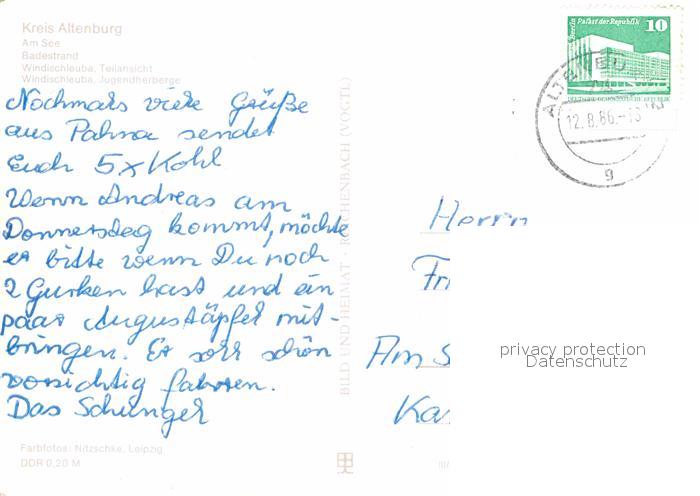 Kreis Altenburg
Am See
Badestrand
Windischleuba, Teilansicht
Windischleuba, Jugendherberge
Nochmals viele Grüße
aus Pahna sendet
Euch 5x Kohl
Wenn Andreas am
Donnerstag kommt, möchte
er bitte wenn Du noch
2 Gurken hast und ein
paar Augustäpfel mit-
bringen. Er soll schön
vorsichtig fahren.
Das
Farbfotos: Nitzschke, Leipzig
DDR 0,20 M
BILD UND HEIMAT · REICHENBACH (VOGTL)
Berlin Palast der Republik
10
DEUTSCHE DEMOKRATISCHE REPUBLIK
ALTENBURG
12.8.86.-
g
Herrn
Fri
Am S
Ka
III/
privacy protection
Datenschutz